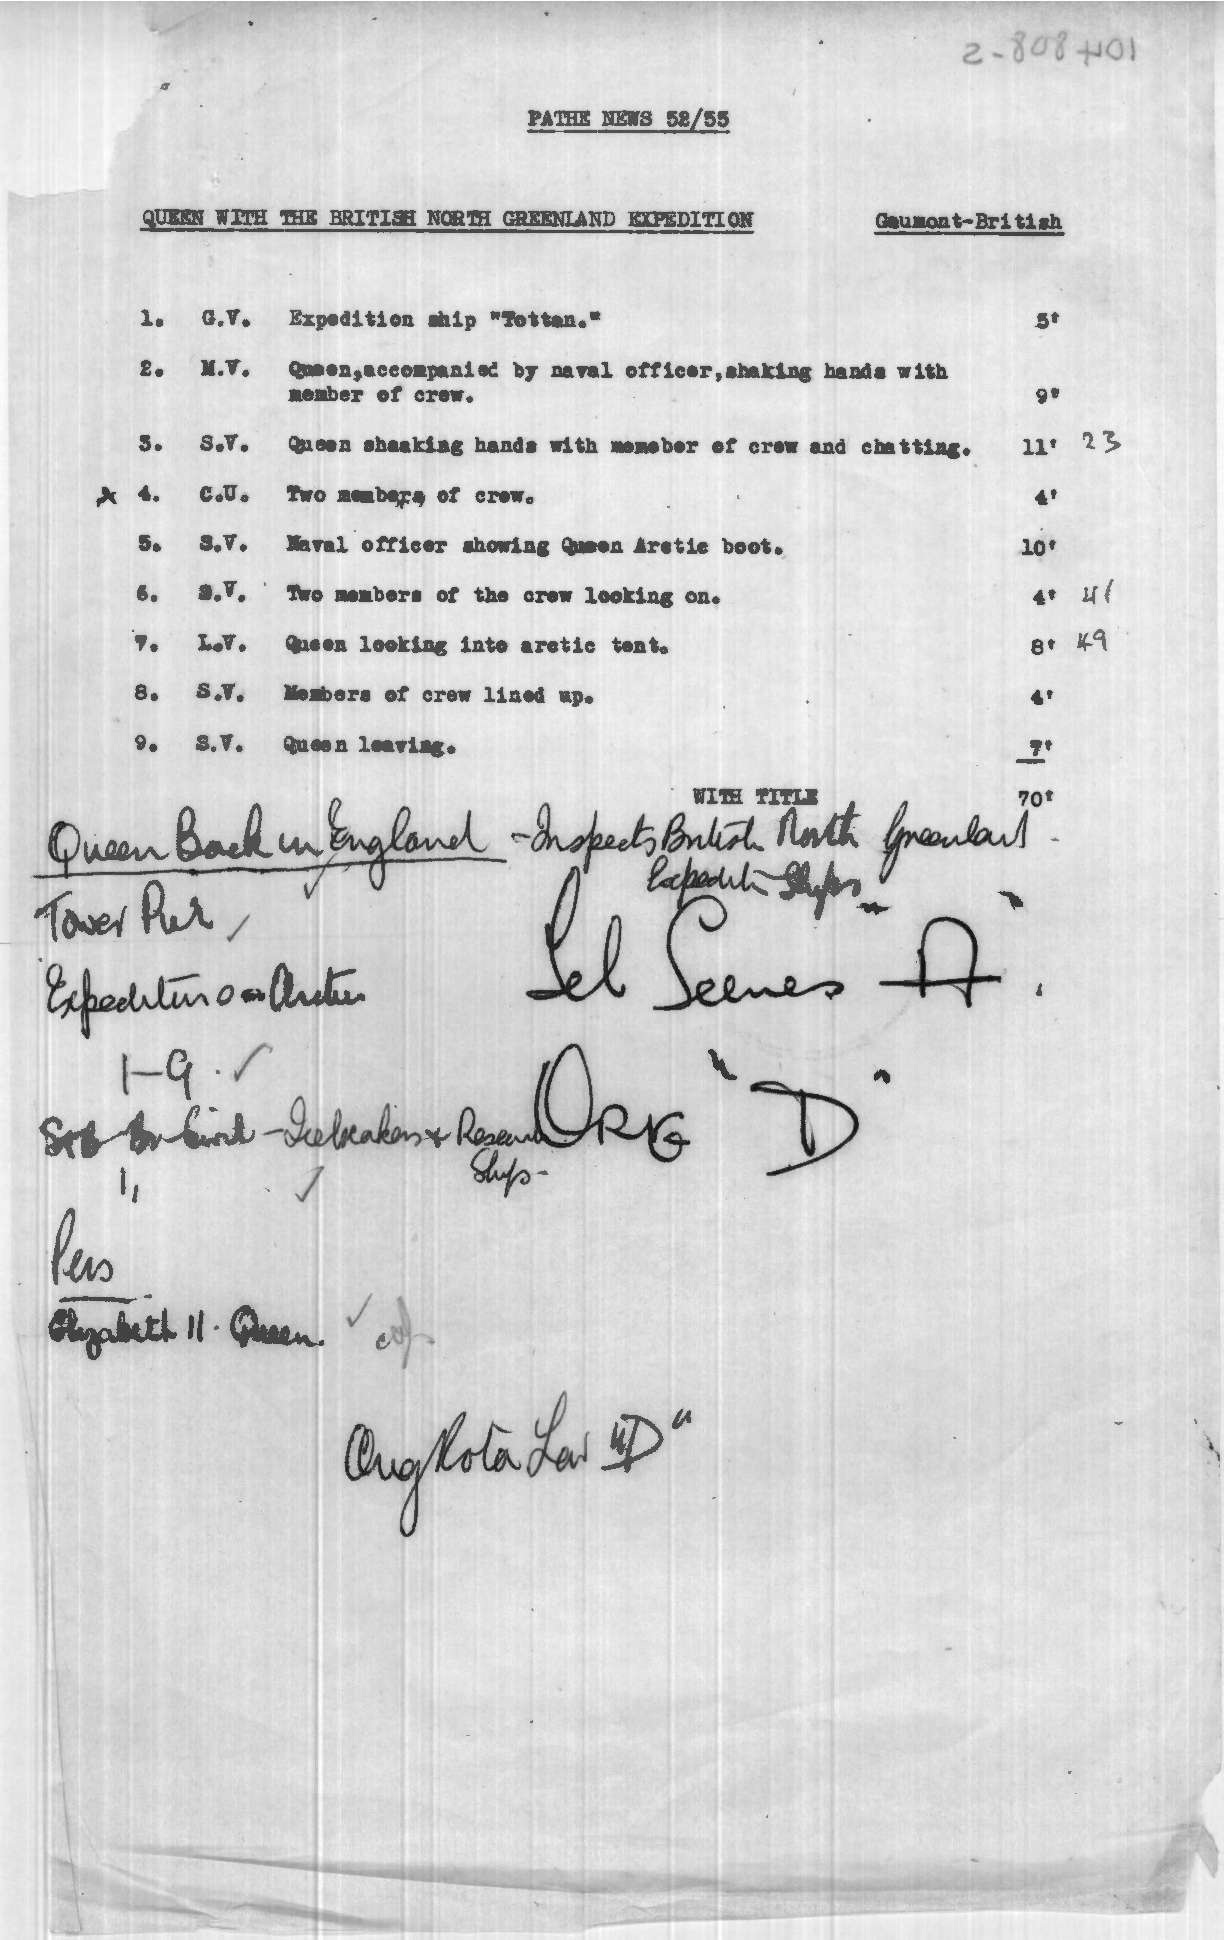 PATHE NEWS 52/55
QUEEN WITH THE BRITISH NORTH GREENLAND EXPEDITION Gaumont-British
1. G.V. Expedition ship "Tottan." 5'
2. M.V. Queen,accompanied by naval officer,shaking hands with
member of crew. 9'
3. S.V. Queen shaaking hands with memeber of crew and chatting. 11' 23
4. C.U. Two members of crew. 4'
5. S.V. Naval officer showing Queen Arctic boot. 10'
6. S.V. Two members of the crew looking on. 4' 41
7. L.V. Queen looking into arctic tent. 8' 49
8. S.V. Members of crew lined up. 4'
9. S.V. Queen leaving. 7'
WITH TITLE 70'
Queen Back in England - Inspects British North Greenland -
Expedit- Ships
Tower Pier
Sel Scenes "A".
1-9.
Icebreakers & Research
Ships-
ORG "D"
Pers
Elizabeth II. Queen.
Orig Rota Lav "D"